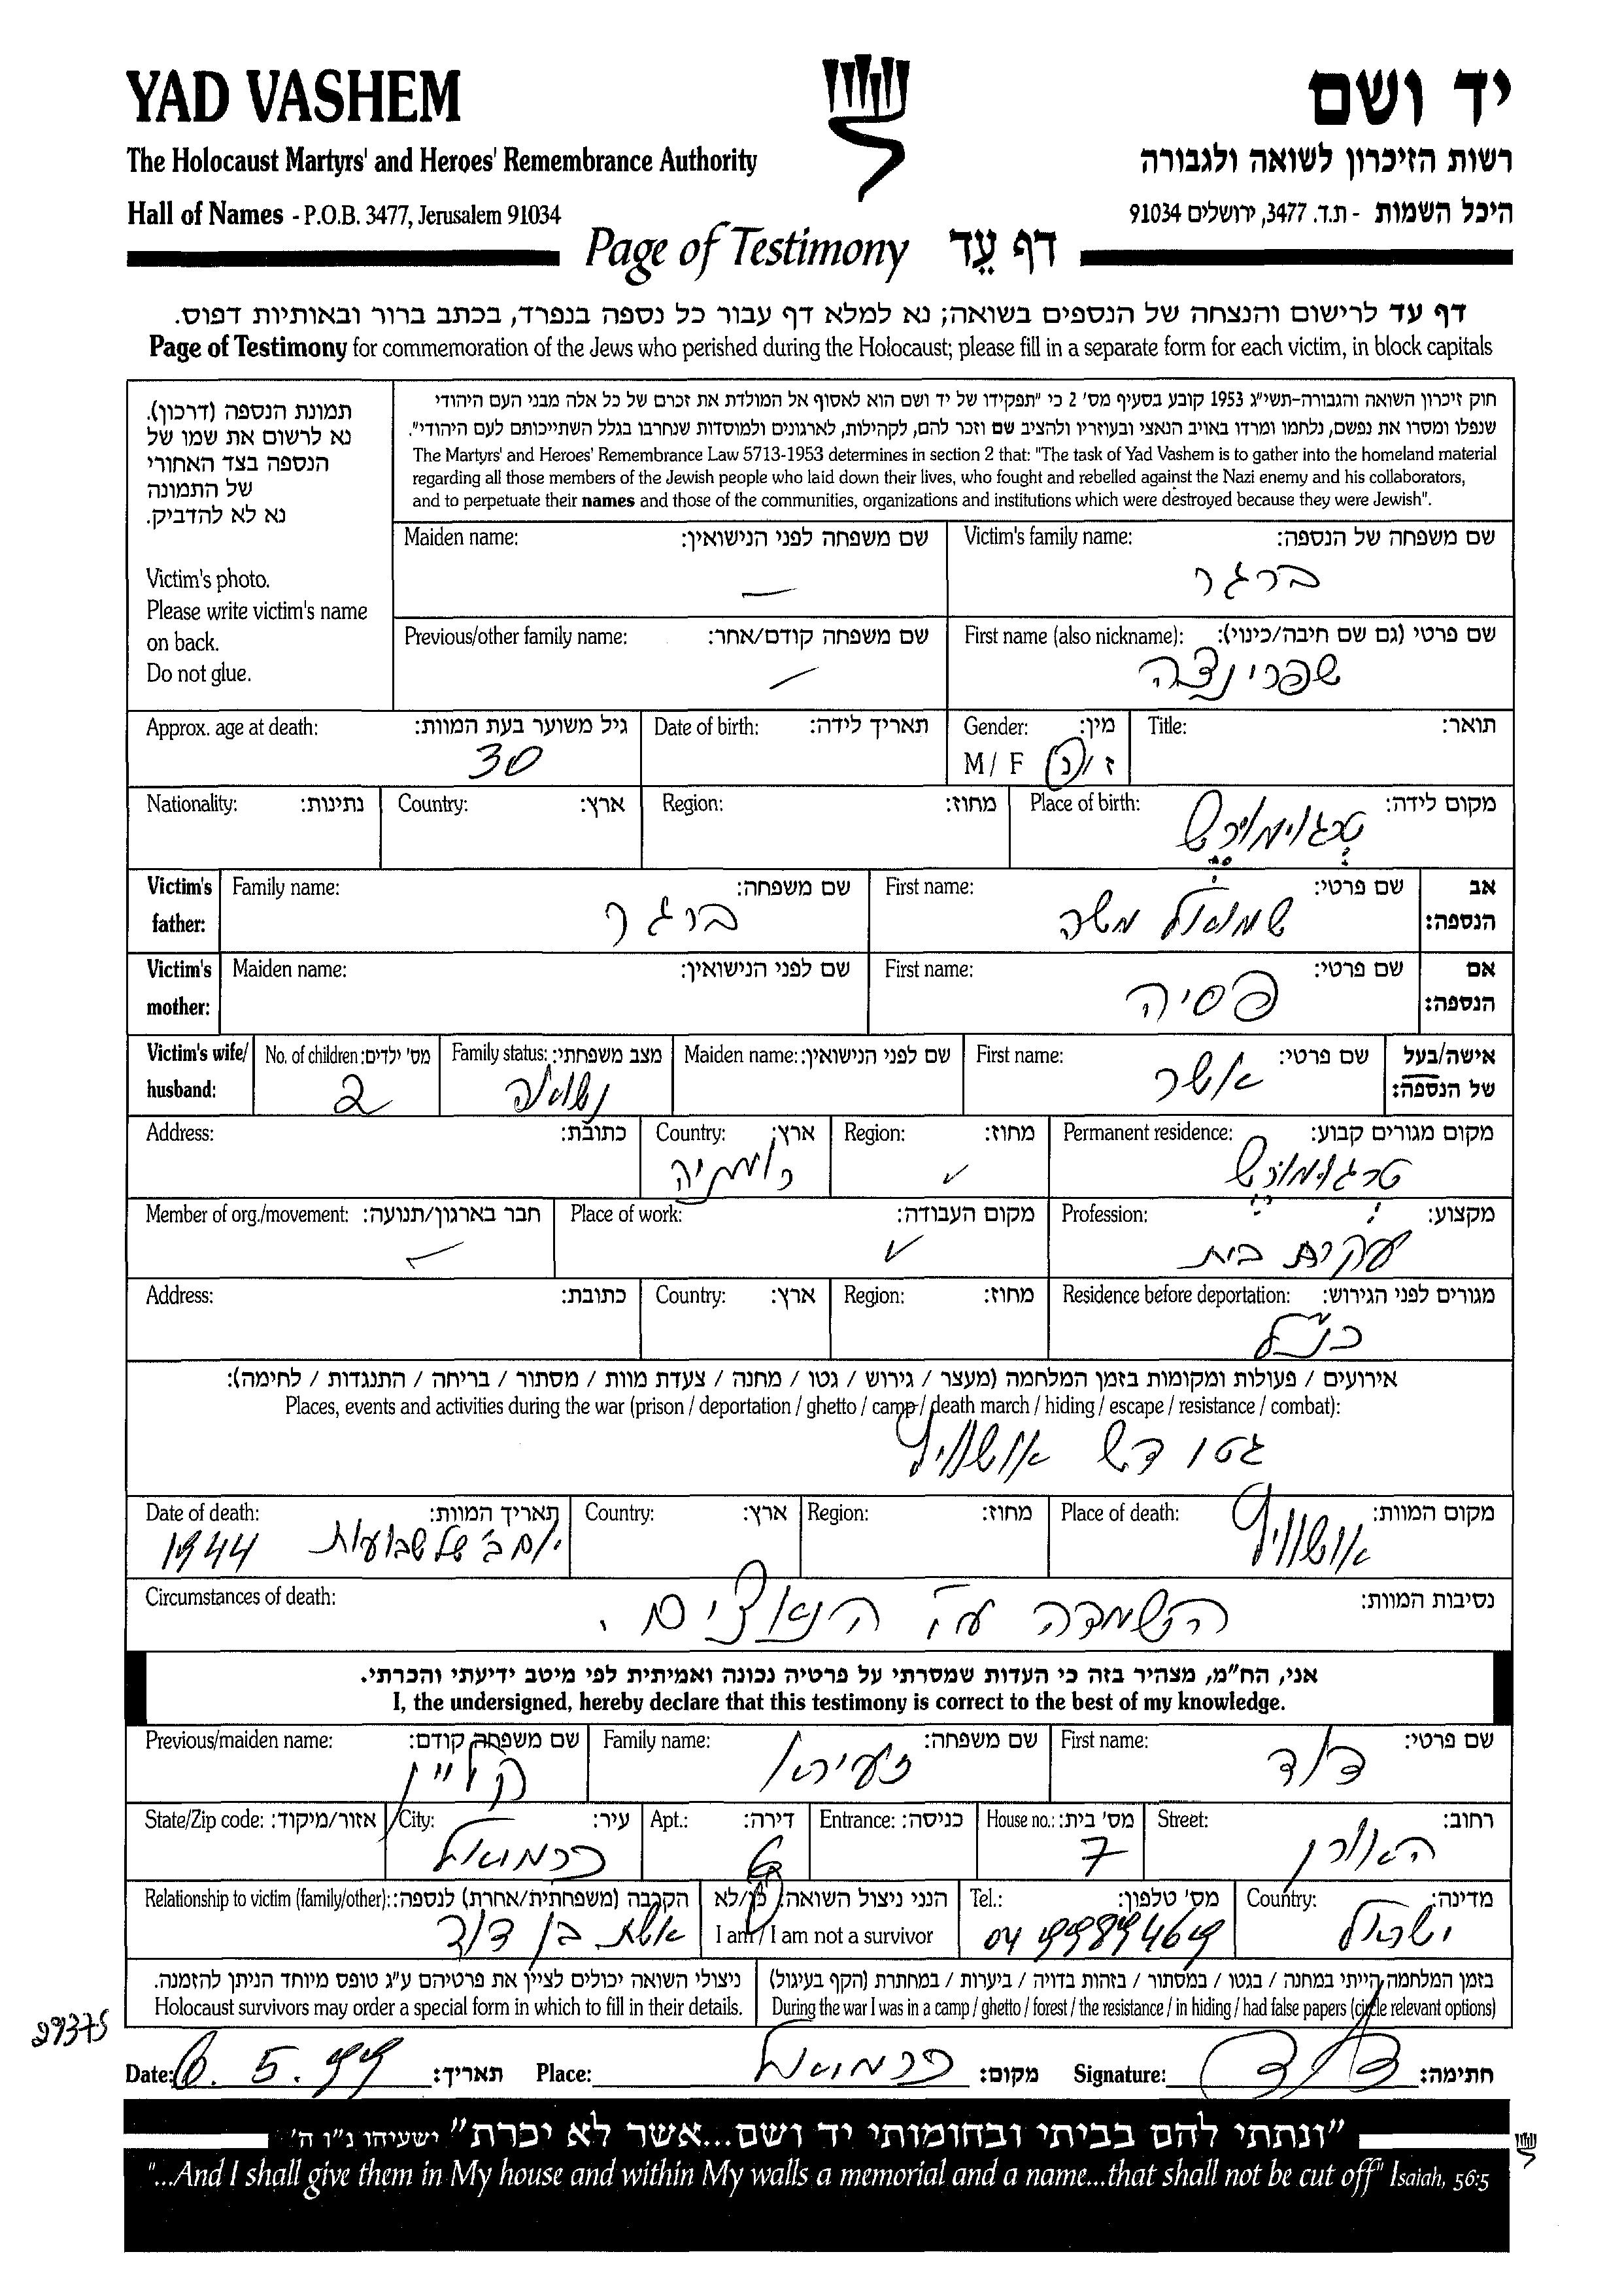 YAD VASHEM
יד ושם
The Holocaust Martyrs' and Heroes' Remembrance Authority
רשות הזיכרון לשואה ולגבורה
Hall of Names - P.O.B. 3477, Jerusalem 91034
היכל השמות - ת.ד. 3477, ירושלים 91034
Page of Testimony דף עֵד
דף עד לרישום והנצחה של הנספים בשואה; נא למלא דף עבור כל נספה בנפרד, בכתב ברור ובאותיות דפוס.
Page of Testimony for commemoration of the Jews who perished during the Holocaust; please fill in a separate form for each victim, in block capitals
תמונת הנספה (דרכון).
נא לרשום את שמו של
הנספה בצד האחורי
של התמונה
נא לא להדביק.
Victim's photo.
Please write victim's name
on back.
Do not glue.
חוק זיכרון השואה והגבורה-תשי"ג 1953 קובע בסעיף מס' 2 כי "תפקידו של יד ושם הוא לאסוף אל המולדת את זכרם של כל אלה מבני העם היהודי
שנפלו ומסרו את נפשם, נלחמו ומרדו באויב הנאצי ובעוזריו ולהציב שם וזכר להם, לקהילות, לארגונים ולמוסדות שנחרבו בגלל השתייכותם לעם היהודי".
The Martyrs' and Heroes' Remembrance Law 5713-1953 determines in section 2 that: "The task of Yad Vashem is to gather into the homeland material
regarding all those members of the Jewish people who laid down their lives, who fought and rebelled against the Nazi enemy and his collaborators,
and to perpetuate their names and those of the communities, organizations and institutions which were destroyed because they were Jewish".
Victim's family name: שם משפחה של הנספה:
ברגר
Maiden name: שם משפחה לפני הנישואין:
—
First name (also nickname): שם פרטי (גם שם חיבה/כינוי):
שפרינצה
Previous/other family name: שם משפחה קודם/אחר:
—
Title: תואר:
Gender: מין:
M / F ז / נ
Date of birth: תאריך לידה:
Approx. age at death: גיל משוער בעת המוות:
30
Place of birth: מקום לידה:
טרגוימורש
Region: מחוז:
Country: ארץ:
Nationality: נתינות:
Victim's father: אב הנספה:
First name: שם פרטי:
שמואל משה
Family name: שם משפחה:
ברגר
Victim's mother: אם הנספה:
First name: שם פרטי:
פסיה
Maiden name: שם לפני הנישואין:
Victim's wife/husband: אישה/בעל של הנספה:
First name: שם פרטי:
אשר
Maiden name: שם לפני הנישואין:
Family status: מצב משפחתי:
נשואה
No. of children: מס' ילדים:
2
Permanent residence: מקום מגורים קבוע:
טרגומורש
Region: מחוז:
Country: ארץ:
רומניה
Address: כתובת:
Profession: מקצוע:
עקרת בית
Place of work: מקום העבודה:
Member of org./movement: חבר בארגון/תנועה:
Residence before deportation: מגורים לפני הגירוש:
כנ"ל
Region: מחוז:
Country: ארץ:
Address: כתובת:
אירועים / פעולות ומקומות בזמן המלחמה (מעצר / גירוש / גטו / מחנה / צעדת מוות / מסתור / בריחה / התנגדות / לחימה):
Places, events and activities during the war (prison / deportation / ghetto / camp / death march / hiding / escape / resistance / combat):
גטו דש אושוויץ
Place of death: מקום המוות:
אושוויץ
Region: מחוז:
Country: ארץ:
Date of death: תאריך המוות:
יום ב' של שבועות 1944
Circumstances of death: נסיבות המוות:
השמדה ע"י הנאצים.
אני, הח"מ, מצהיר בזה כי העדות שמסרתי על פרטיה נכונה ואמיתית לפי מיטב ידיעתי והכרתי.
I, the undersigned, hereby declare that this testimony is correct to the best of my knowledge.
First name: שם פרטי:
דוד
Family name: שם משפחה:
זעירא
Previous/maiden name: שם משפחה קודם:
קליין
Street: רחוב:
האורן
House no.: מס' בית:
7
Entrance: כניסה:
Apt.: דירה:
City: עיר:
כרמיאל
State/Zip code: אזור/מיקוד:
Country: מדינה:
ישראל
Tel.: מס' טלפון:
04 9989469
הנני ניצול השואה: כן/לא
I am / I am not a survivor
Relationship to victim (family/other): הקרבה (משפחתית/אחרת) לנספה:
אשת בן דוד
בזמן המלחמה הייתי במחנה / בגטו / במסתור / בזהות בדויה / ביערות / במחתרת (הקף בעיגול)
During the war I was in a camp / ghetto / forest / the resistance / in hiding / had false papers (circle relevant options)
ניצולי השואה יכולים לציין את פרטיהם ע"ג טופס מיוחד הניתן להזמנה.
Holocaust survivors may order a special form in which to fill in their details.
29375
Date: 6.5.99 תאריך:
Place: כרמיאל מקום:
Signature: דוד חתימה:
"ונתתי להם בביתי ובחומותי יד ושם...אשר לא יכרת" ישעיהו נ"ו ה'
"...And I shall give them in My house and within My walls a memorial and a name...that shall not be cut off" Isaiah, 56:5